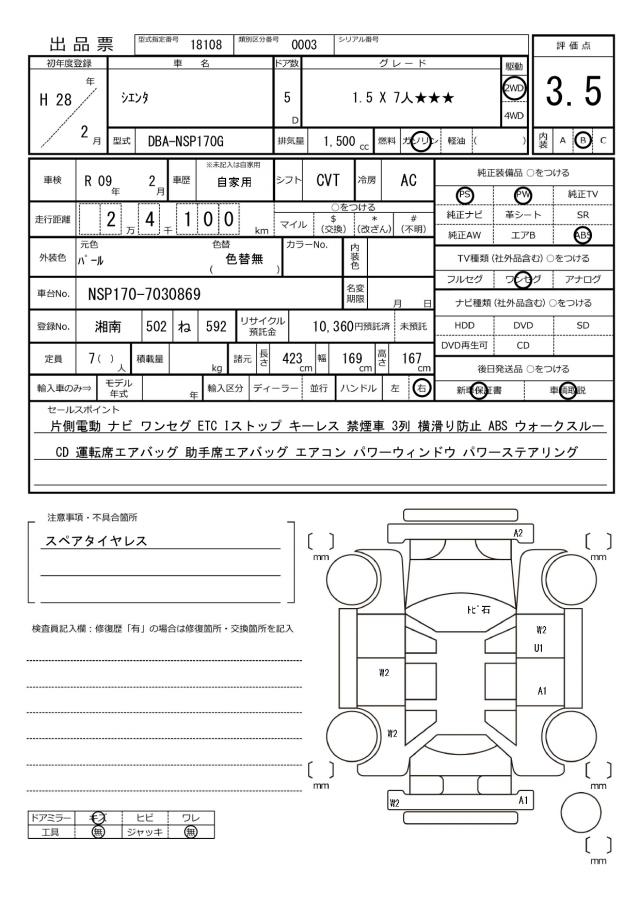 出品票 型式指定番号 18108 類別区分番号 0003 シリアル番号
評価点
3.5
内装 A B C
初年度登録 車 名 ドア数 グレード 駆動
H 28 年 2 月
シエンタ 5 D 1.5 X 7人★★★ 2WD 4WD
型式 DBA-NSP170G 排気量 1,500 cc 燃料 ガソリン 軽油 ( )
車検 R 09 年 2 月 車歴 ※未記入は自家用 自家用 シフト CVT 冷房 AC
走行距離 2 万 4 千 1 0 0 km
○をつける
マイル $ (交換) * (改ざん) # (不明)
外装色 元色 パール 色替 ( 色替無 ) カラーNo. 内装色
車台No. NSP170-7030869 名変期限 月 日
登録No. 湘南 502 ね 592 リサイクル預託金 10,360円預託済 未預託
定員 7 ( ) 人 積載量 kg 諸元 長さ 423 cm 幅 169 cm 高さ 167 cm
輸入車のみ⇒ モデル年式 年 輸入区分 ディーラー 並行 ハンドル 左 右
純正装備品 ○をつける
PS PW 純正TV
純正ナビ 革シート SR
純正AW エアB ABS
TV種類 (社外品含む) ○をつける
フルセグ ワンセグ アナログ
ナビ種類 (社外品含む) ○をつける
HDD DVD SD
DVD再生可 CD
後日発送品 ○をつける
新車保証書 車輌取説
セールスポイント
片側電動 ナビ ワンセグ ETC Iストップ キーレス 禁煙車 3列 横滑り防止 ABS ウォークスルー
CD 運転席エアバッグ 助手席エアバッグ エアコン パワーウィンドウ パワーステアリング
注意事項・不具合箇所
スペアタイヤレス
検査員記入欄：修復歴「有」の場合は修復箇所・交換箇所を記入
ドアミラー キズ ヒビ ワレ
工具 無 ジャッキ 無
mm
A2
mm
トビ石
W2
U1
W2
A1
W2
mm
mm
W2
A1
mm